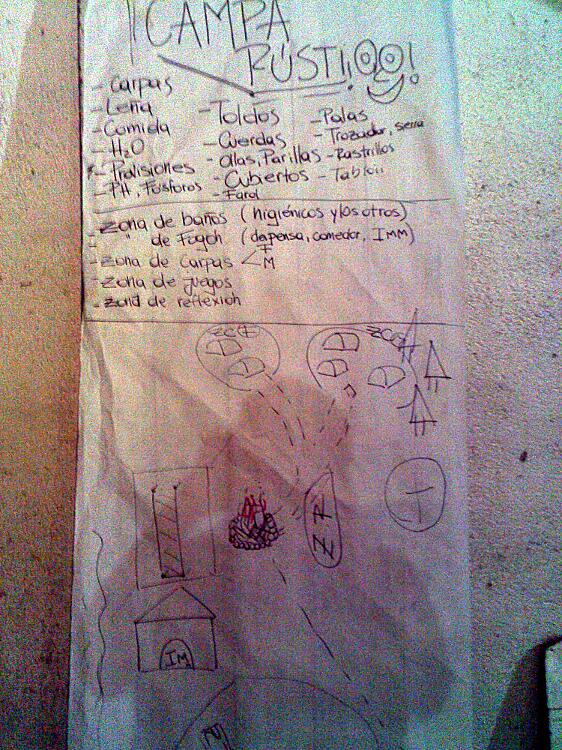 ¡CAMPA
RÚSTICO!
- Carpas
- Leña
- Comida
- H₂O
- Provisiones
- PH, Fósforos
- Toldos
- Cuerdas
- Ollas, Parillas
- Cubiertos
- Farol
- Palas
- Trozador, sierra
- Rastrillos
- Zona de baños (higiénicos y los otros)
- " de Fogón (despensa, comedor, IMM)
- Zona de carpas < F M
- Zona de juegos
- Zona de reflexión
ZC
ZC
ZR
IM